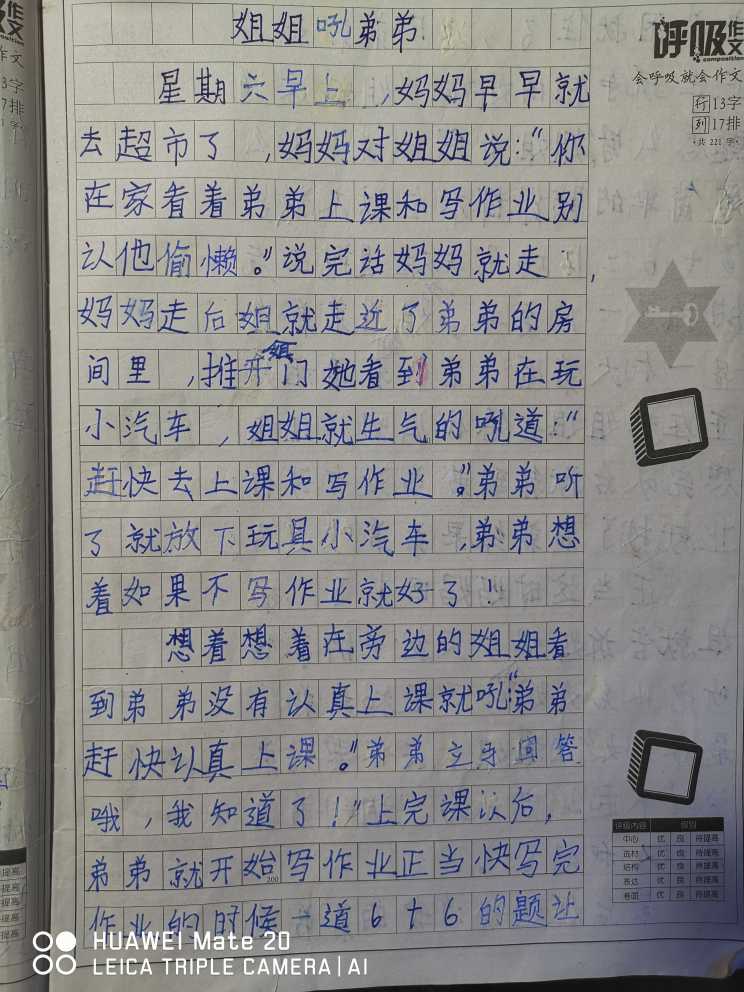 姐姐吼弟弟
星期六早上,妈妈早早就
去超市了,妈妈对姐姐说:“你
在家看着弟弟上课和写作业别
认他偷懒。”说完话妈妈就走,
妈妈走后姐就走近了弟弟的房
间里,推开房门她看到弟弟在玩
小汽车,姐姐就生气的吼道:“
赶快去上课和写作业”。弟弟听
了就放下玩具小汽车,弟弟想
着如果不写作业就好了!
想着想着在旁边的姐姐看
到弟弟没有认真上课就吼“弟弟
赶快认真上课。”弟弟立乐回答
哦,我知道了!”上完课以后,
弟弟就开始写作业正当快写完
作业的时候一道6+6的题让
呼吸作文
composition
会呼吸就会作文
行13字
列17排
·共 221 字·
200
评级内容 级别
中心 优 良 待提高
选材 优 良 待提高
结构 优 良 待提高
表达 优 良 待提高
卷面 优 良 待提高
HUAWEI Mate 20
LEICA TRIPLE CAMERA | AI